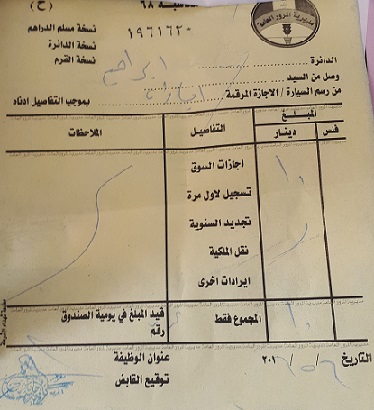 محاسبة ٦٨ (ح)
مديرية المرور العامة
١٩٦١٦٢٠
نسخة مسلم الدراهم
نسخة الدائرة
نسخة القرم
الدائرة
وصل من السيد ابراهيم
من رسم السيارة / الاجازة المرقمة بموجب التفاصيل ادناه
المبلغ التفاصيل الملاحظات
فلس دينار
اجازات السوق
تسجيل لاول مرة
تجديد السنوية
نقل الملكية
ايرادات اخرى
المجموع فقط قيد المبلغ في يومية الصندوق
رقم
التاريخ / / ٢٠١ عنوان الوظيفة
توقيع القابض